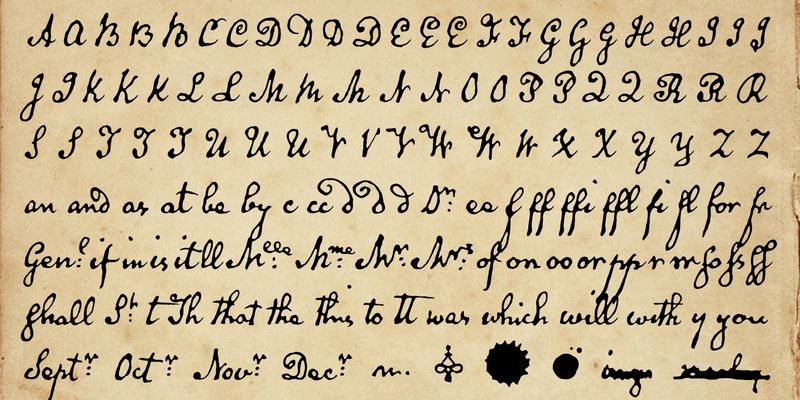 A A B B B C C D D D D E E E F F G G G H H I I I
J J K K K L L M M M N N O O P P Q Q R R R
S S T T T U U U V V V W W W X X Y Y Z Z
an and as at be by c cc d d d Dr. ee f ff ffi ffl fi fl for fr
Genl. if in is it ll Mlle. Mme. Mr. Mrs. of on oo or pp r rr ſo ſs ſſ
ſhall St. t Th that the this to tt was which will with y you
Septr. Octr. Novr. Decr. m.